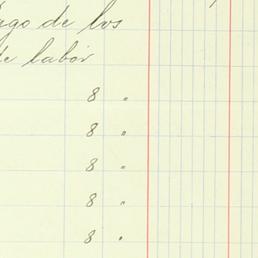 ago de los
de labor
8 "
8 "
8 "
8 "
8 "